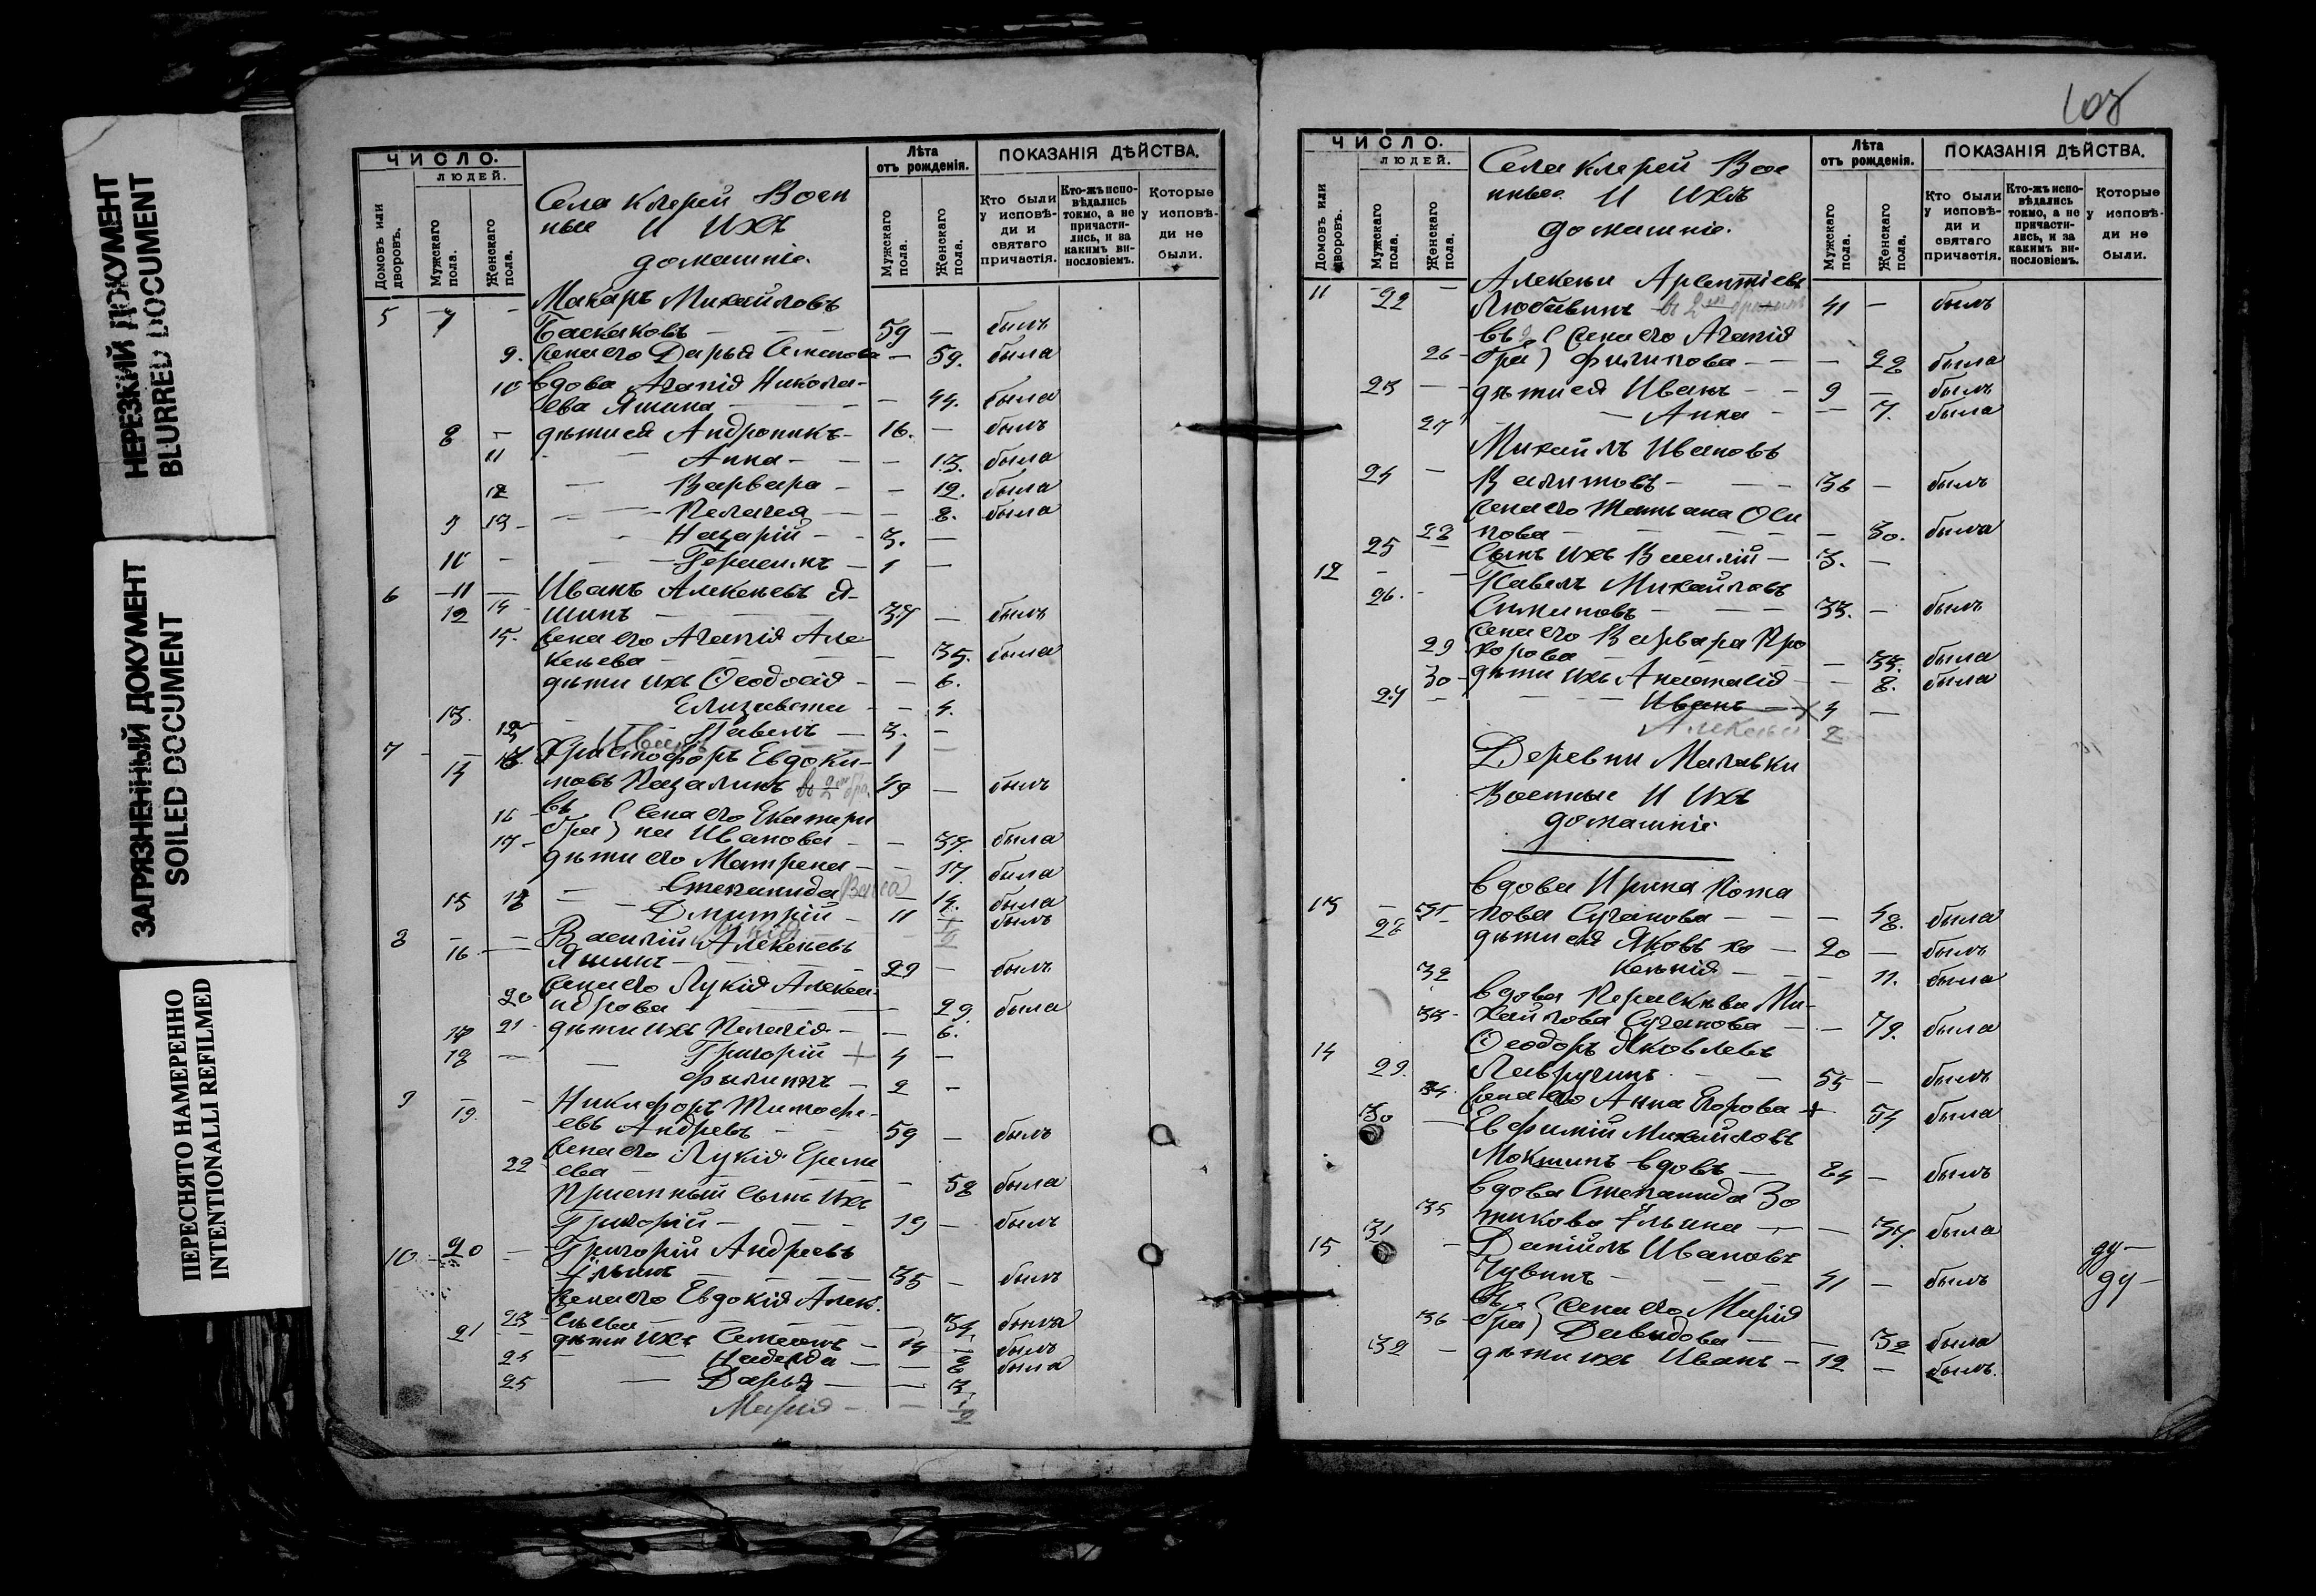 НЕРЕЗКИЙ ДОКУМЕНТ
BLURRED DOCUMENT
ЗАГРЯЗНЕННЫЙ ДОКУМЕНТ
SOILED DOCUMENT
ПЕРЕСНЯТО НАМЕРЕННО
INTENTIONALLI REFILMED
ЧИСЛО.
ЛЮДЕЙ.
Домовъ или дворовъ.
Мужскаго пола.
Женскаго пола.
Села Клерей Воен
ные и ихъ
домашніе.
Лѣта
отъ рожденія.
Мужскаго пола.
Женскаго пола.
ПОКАЗАНІЯ ДѢЙСТВА.
Кто были у исповѣди и святаго причастія.
Кто-жъ исповѣдались токмо, а не причастились, и за какимъ винословіемъ.
Которые у исповѣди не были.
5 7 - Макаръ Михайловъ
Баскаковъ 59 - былъ
9. жена его Дарья - 59. была
10 вдова Агапія Никола-
ева Яшина - 44. была
8 - дѣти ея Андроникъ - 16. - былъ
11 Анна - 13. была
12 Варвара - 12. была
13 Пелагея - 8. была
9 Назарій - 3. -
10 - 1 -
6 11 - Иванъ Алексѣевъ Я-
12 14 шинъ 37 - былъ
15. жена его Агапія Але
ксѣева - 35. была
дѣти ихъ Ѳеодосія - 6.
Елизавета - 4.
13. Павелъ - 3. -
Иванъ 1
7 14 Христофоръ Евдоки-
мовъ 49 - былъ
16 въ 2 бра жена его Екатери
17 на Иванова - 37. была
дѣти его Матрена - 17. была
18 Степанида - 14. была
15 Дмитрій 11 былъ
1/2
8 16 Василій Алексѣевъ
Яшинъ 29 - былъ
жена его Лукія Алекса-
20 ндрова 29. была
17 21 дѣти ихъ Пелагія - 6.
18 Григорій + 4 -
Филиппъ - 2 -
9 19. Никифоръ Тимофе-
евъ Андревъ 59 - былъ
жена его Лукія Ереме
22 ева - 58 была
Пріемный сынъ ихъ
Григорій - 19 - былъ
10 20 - Григорій Андреевъ
35 - былъ
жена его Евдокія Алек-
23 сѣева 34. была
21 дѣти ихъ Симеонъ - 14 - былъ
24 Надежда - 8 была
25 Дарья - 3.
Марія - 1/2
ЧИСЛО.
ЛЮДЕЙ.
Домовъ или дворовъ.
Мужскаго пола.
Женскаго пола.
Села Клерей Вое
нные и ихъ
домашніе.
Лѣта
отъ рожденія.
Мужскаго пола.
Женскаго пола.
ПОКАЗАНІЯ ДѢЙСТВА.
Кто были у исповѣди и святаго причастія.
Кто-жъ исповѣдались токмо, а не причастились, и за какимъ винословіемъ.
Которые у исповѣди не были.
11 22 - Алексѣй
Любавинъ 41 - былъ
въ 2 жена его Агапія
26 - бра Филипова - 28 была
23 - дѣти ея Иванъ - 9 - былъ
27 Анна - 7. была
Михаилъ Ивановъ
24 - 36 - былъ
жена его Татьана Оси
28 пова - 30. была
25 Сынъ ихъ Василій - 3. -
12 Павелъ Михайловъ
26. - 33. - былъ
жена его Варвара Про
29 хорова - 33. была
30 - дѣти ихъ Анастасія - 8. была
27 Иванъ 4 -
Алексѣй 2
Деревни Малавки
Военные и ихъ
домашніе
вдова Ирина Пота
13 31 пова Суганова - 48. была
28 дѣти ея Яковъ хо - 20 - былъ
32 Ксенія - 11. была
вдова Параскѣва Ми-
33 хайлова Суганова - 79. была
14 Ѳеодоръ Яковлевъ
29. Лаврушинъ 55 - былъ
34. жена его Анна Егорова + 54 была
30 Евфимій Михайловъ
Мокшинъ вдовъ - 84 - былъ
вдова Степанида Зо
35 тикова - 37. была
15 31 Даніилъ Ивановъ
41 - былъ
въ бра жена его Марія
36 Давидова - 32 была
32 - дѣти ихъ Иванъ - 12 - былъ.